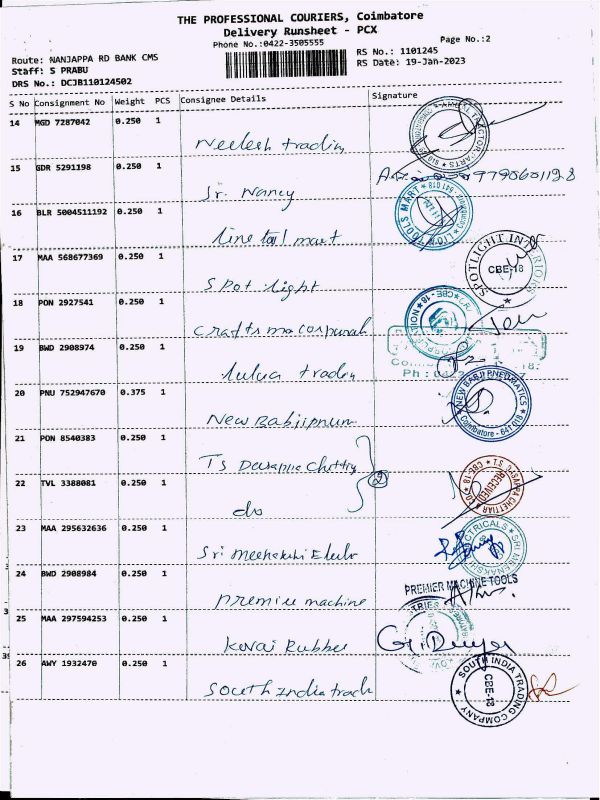 THE PROFESSIONAL COURIERS, Coimbatore
Delivery Runsheet - PCX
Phone No.:0422-3505555
Page No.:2
Route: NANJAPPA RD BANK CMS
RS No.: 1101245
Staff: S PRABU
RS Date: 19-Jan-2023
DRS No.: DCJB110124502
S No Consignment No Weight PCS Consignee Details Signature
14 MGD 7287042 0.250 1
Neelesh trading
15 GDR 5291198 0.250 1
9790601128
Sr. Nancy
16 BLR 5004511192 0.250 1
TOOLS MART 641 018
line tool mart
17 MAA 568677369 0.250 1
SPOTLIGHT INTERIORS CBE-18
Spot light
18 PON 2927541 0.250 1
CBE - 18
19 BWD 2908974 0.250 1
Ph :
20 PNU 752947670 0.375 1
NEW BABJI PNEUMATICS Coimbatore - 641 018
New Babjipnum
21 PON 8540383 0.250 1
TS Dasappa Chettiy
22 TVL 3388081 0.250 1
T.S. DASAPPA CHETTIAR & CO CBE-18 RECEIVED
2
do
23 MAA 295632636 0.250 1
SRI MEENAKSHI ELECTRICALS
Sri meenakshi Elect
24 BWD 2908984 0.250 1
PREMIER MACHINE TOOLS
premier machine
25 MAA 297594253 0.250 1
Kovai Rubber
26 AWY 1932470 0.250 1
SOUTH INDIA TRADING COMPANY CBE-18
South India trad